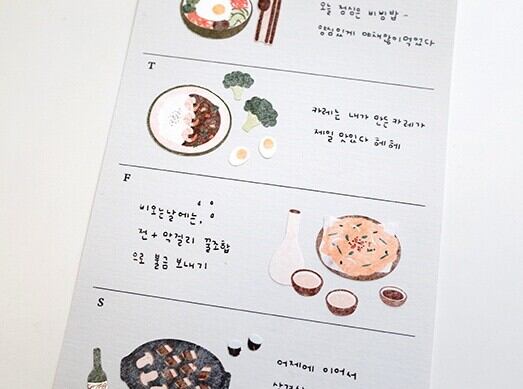 오늘 점심은 비빔밥~
양심있게 야채많이먹었다
T
카레는 내가 만든카레가
제일 맛있다 헤헤
F
비오는날에는,
전 + 막걸리 꿀조합
으로 불금 보내기
S
어제에 이어서